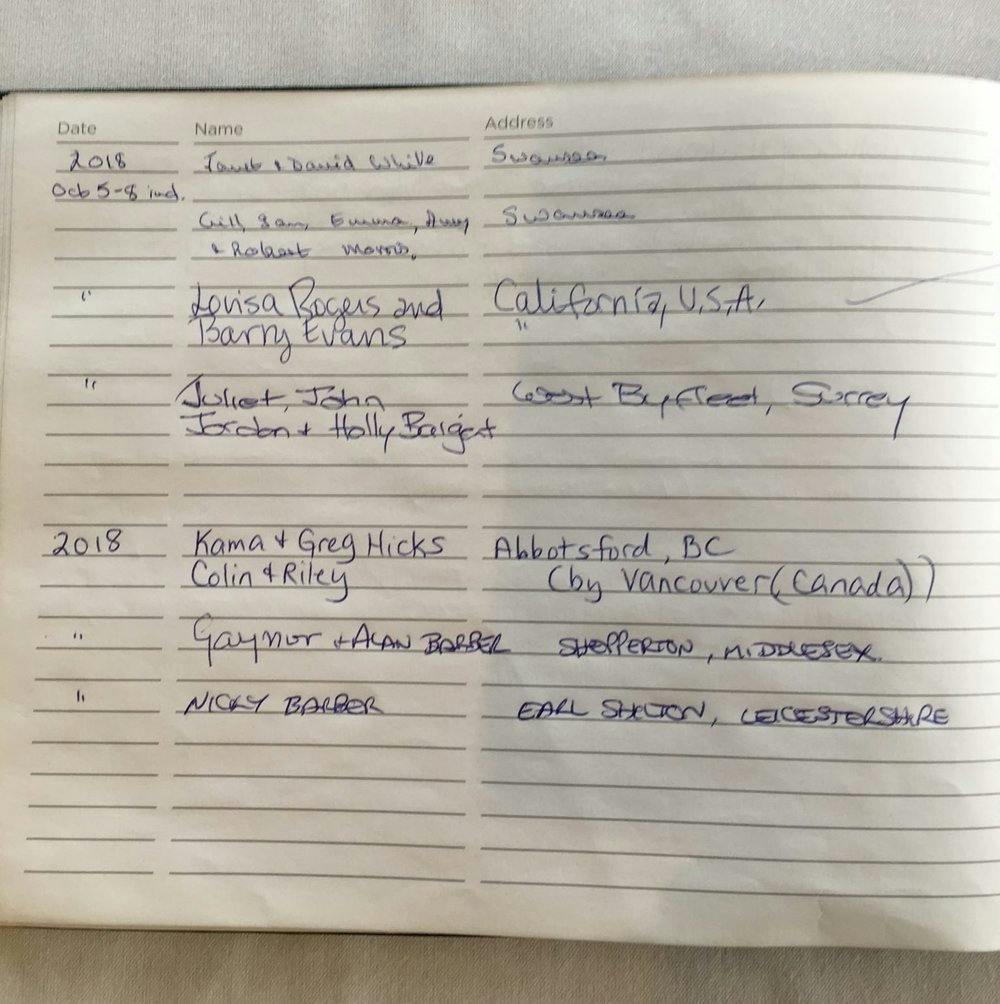 Date Name Address
2018 Janet & David White Swansea
Oct 5-8 incl.
Gill, Sam, Emma, Amy Swansea
& Robert Morris.
" Louisa Rogers and California, U.S.A.
Barry Evans "
" Juliet, John West Byfleet, Surrey
Jordan + Holly Bargent
2018 Kama & Greg Hicks Abbotsford, BC
Colin & Riley (by Vancouver (Canada))
" Gaynor & ALAN BARBER SHEPPERTON, MIDDLESEX.
" NICKY BARBER EARL SHILTON, LEICESTERSHIRE